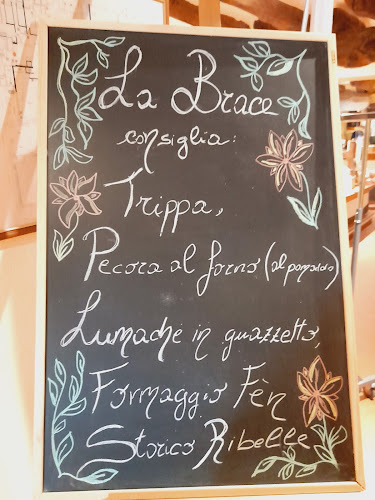 La Brace
consiglia:
Trippa,
Pecora al forno (al pomodoro)
Lumache in guazzetto,
Formaggio Fèn
Storico Ribelle